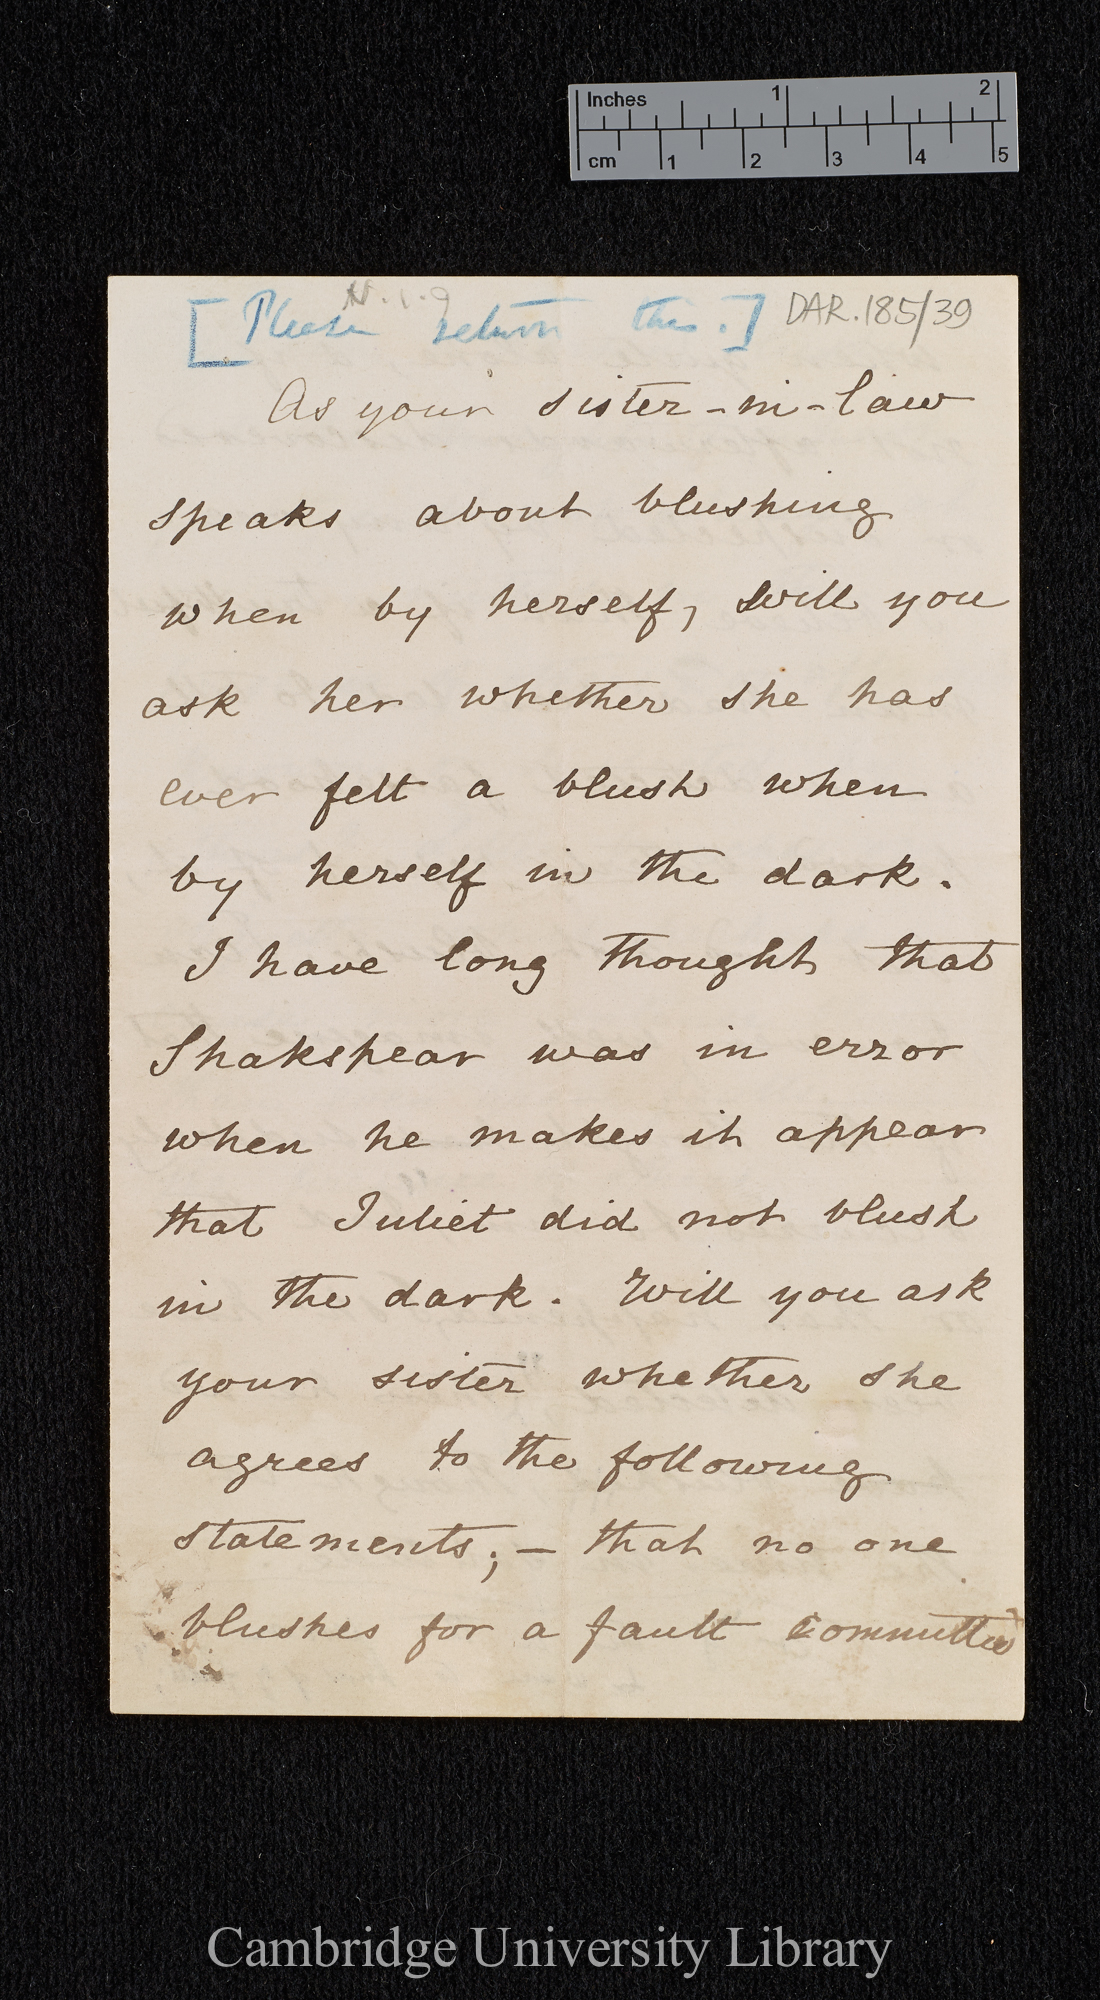 Inches 1 2
cm 1 2 3 4 5
[Please return this.] DAR.185/39
As your sister-in-law
speaks about blushing
when by herself, will you
ask her whether she has
ever felt a blush when
by herself in the dark.
I have long thought that
Shakspear was in error
when he makes it appear
that Juliet did not blush
in the dark. Will you ask
your sister whether she
agrees to the following
statements; — that no one
blushes for a fault committed
Cambridge University Library